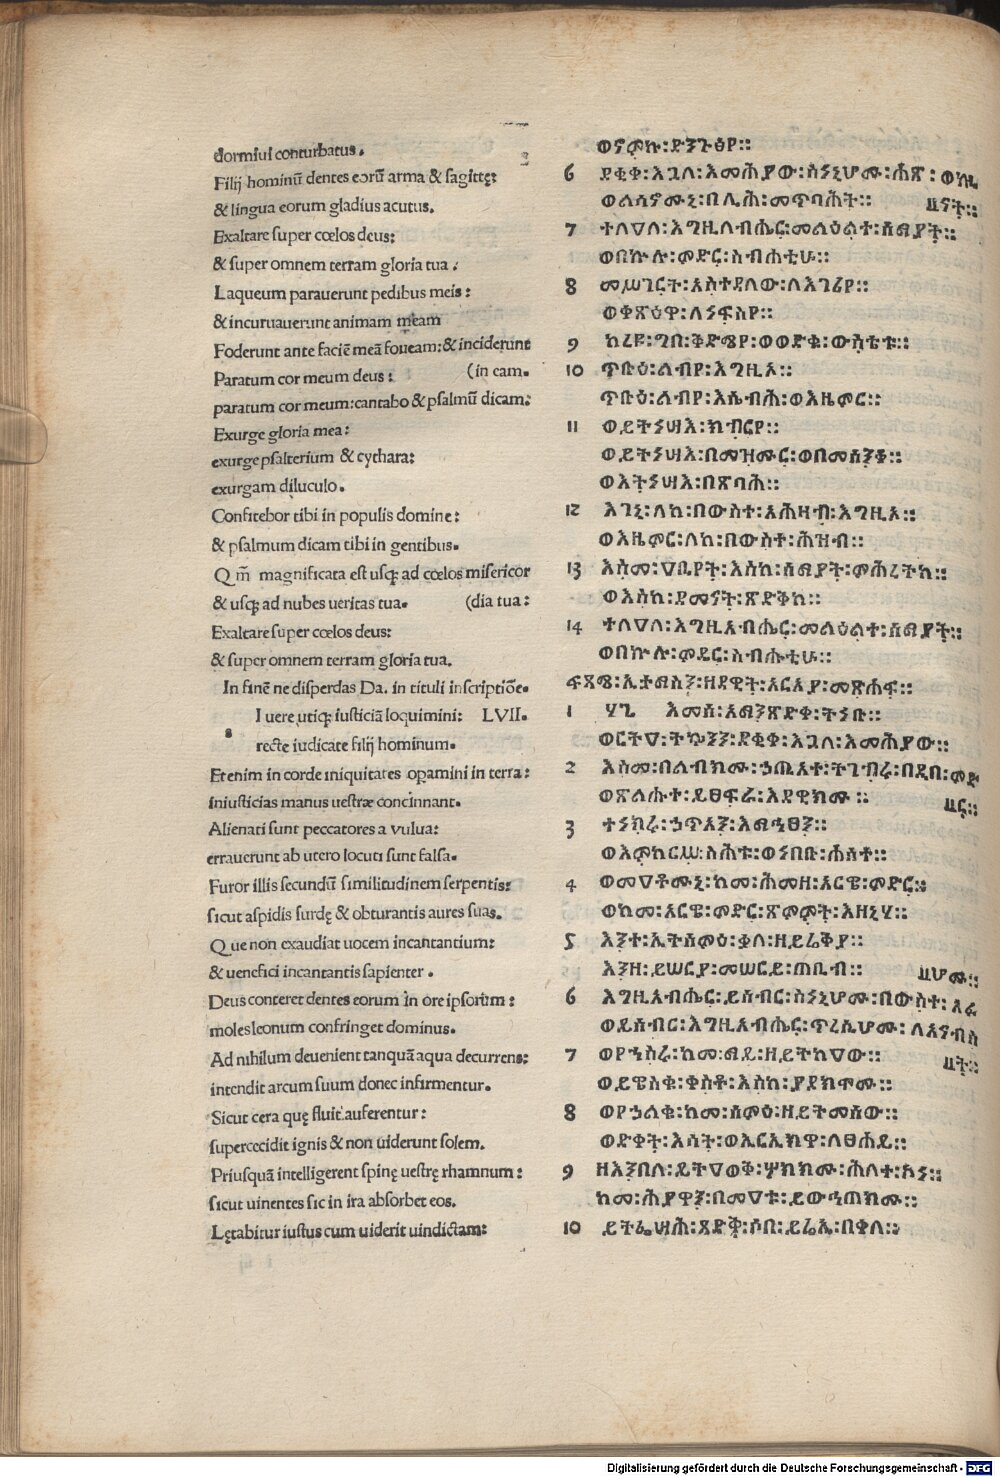 dormiui conturbatus.
Filij hominū dentes eorū arma & sagittę:
& lingua eorum gladius acutus.
Exaltare super cœlos deus:
& super omnem terram gloria tua :
Laqueum parauerunt pedibus meis :
& incuruauerunt animam meam
Foderunt ante faciē meā foueam: & inciderunt
Paratum cor meum deus : (in eam.
paratum cor meum: cantabo & psalmū dicam:
Exurge gloria mea:
exurge psalterium & cythara:
exurgam diluculo.
Confitebor tibi in populis domine:
& psalmum dicam tibi in gentibus.
Qm̄ magnificata est usq; ad cœlos misericor
& usq; ad nubes ueritas tua. (dia tua:
Exaltare super cœlos deus:
& super omnem terram gloria tua.
In finē ne disperdas Da. in tituli inscriptiōe.
I uere utiq; iusticiā loquimini: LVII.
s recte iudicate filij hominum.
Etenim in corde iniquitates opamini in terra:
iniusticias manus uestræ concinnant.
Alienati sunt peccatores a vulua:
errauerunt ab utero locuti sunt falsa.
Furor illis secundū similitudinem serpentis:
sicut aspidis surdę & obturantis aures suas.
Que non exaudiat uocem incantantium:
& uenefici incantantis sapienter .
Deus conteret dentes eorum in ore ipsorum :
moles leonum confringet dominus.
Ad nihilum deuenient tanquā aqua decurrens:
intendit arcum suum donec infirmentur.
Sicut cera quę fluit auferentur:
supercecidit ignis & non uiderunt solem.
Priusquā intelligerent spinę uestrę rhamnum :
sicut uiuentes sic in ira absorbet eos.
Lętabitur iustus cum uiderit uindictam:
ወኖምኩ፡ድንጉፅየ።
6 ደቂቀ፡እጓለ፡እመሕያው፡ስነኒሆሙ፡ሕጽ፡ወኲ
ወልሳኖሙኒ፡በሊሕ፡መጥባሕት። ናት።
7 ተለዐለ፡እግዚአብሔር፡መልዕልተ፡ሰማያት።
ወበኵሉ፡ምድር፡ስብሐቲሁ።
8 መሥገርት፡አስተዳለው፡ለእገሪየ።
ወቀጽዕዋ፡ለነፍስየ።
9 ከረዩ፡ግበ፡ቅድሜየ፡ወወድቁ፡ውስቴቱ።
10 ጥቡዕ፡ልብየ፡እግዚአ።
ጥቡዕ፡ልብየ፡እሴብሕ፡ወእዜምር።
11 ወይትነሣእ፡ክብርየ።
ወይትነሣእ፡በመዝሙር፡ወበመሰንቆ።
ወእትነሣእ፡በጽባሕ።
12 እገኒ፡ለከ፡በውስተ፡አሕዛብ፡እግዚአ።
ወእዜምር፡ለከ፡በውስተ፡ሕዝብ።
13 እስመ፡ዐቢየት፡እስከ፡ሰማያት፡ምሕረትከ።
ወእስከ፡ደመናት፡ጽድቅከ።
14 ተለዐለ፡እግዚአብሔር፡መልዕልተ፡ሰማያት።
ወበኵሉ፡ምድር፡ስብሐቲሁ።
ፍጻሜ፡ኢታማስን፡ዘዳዊት፡አርአያ፡መጽሐፍ።
1 ፶፯ እመሰ፡አማን፡ጽድቀ፡ትነቡ።
ወርትዐ፡ትኴንኑ፡ደቂቀ፡እጓለ፡እመሕያው።
2 እስመ፡በልብክሙ፡ኃጢአተ፡ትገብሩ፡በዲበ፡ምድ
ወጽልሑተ፡ይፀፍራ፡እደዊክሙ። ር።
3 ተነክሩ፡ኃጥአን፡እማኅፀን።
ወእምከርሡ፡ስሕቱ፡ወነበቡ፡ሐሰተ።
4 ወመዐቶሙኒ፡ከመ፡ሕመዘ፡አርዌ፡ምድር።
ወከመ፡አርዌ፡ምድር፡ጽምምት፡እዘኒሃ።
5 እንተ፡ኢትሰምዕ፡ቃለ፡ዘይሬቅያ።
እንዘ፡ይሠርያ፡መሠርይ፡ጠቢብ። ሆሙ።
6 እግዚአብሔር፡ይሰብር፡ስነኒሆሙ፡በውስተ፡አፉ
ወይሰብር፡እግዚአብሔር፡ጥረሲሆሙ፡ለአናብስ
7 ወየኀስሩ፡ከመ፡ማይ፡ዘይትከዐው። ት።
ወይዌስቁ፡ቀስቶ፡እስከ፡ያደክሞሙ።
8 ወየኃልቁ፡ከመ፡ሰምዕ፡ዘይትመሰው።
ወድቀት፡እሳት፡ወኢርኢክዋ፡ለፀሐይ።
9 ዘእንበለ፡ይትዐወቅ፡ሦክክሙ፡ሕለተ፡ኮነ።
ከመ፡ሕያዋን፡በመዐቱ፡ይውኅጠክሙ።
10 ይትፌሣሕ፡ጻድቅ፡ሶበ፡ይሬኢ፡በቀለ።
Digitalisierung gefördert durch die Deutsche Forschungsgemeinschaft - DFG